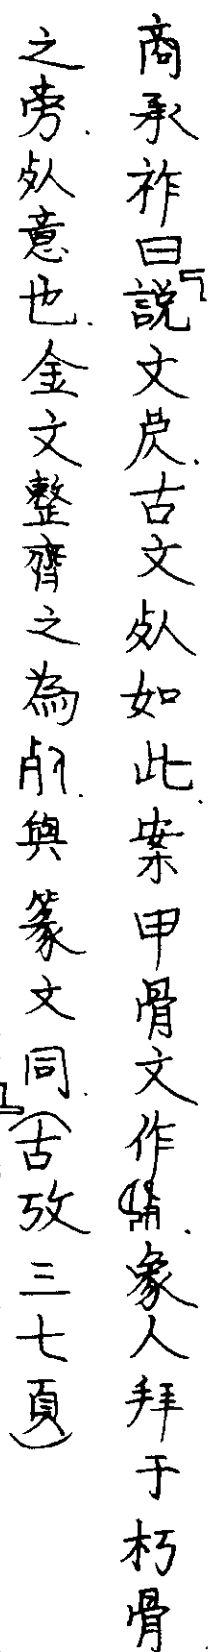 商承祚曰「説文𣦸.古文𣦹如此.案甲骨文作.象人拜于朽骨
之旁.𣦹意也.金文整齊之為.與篆文同.」(古攷三七頁)